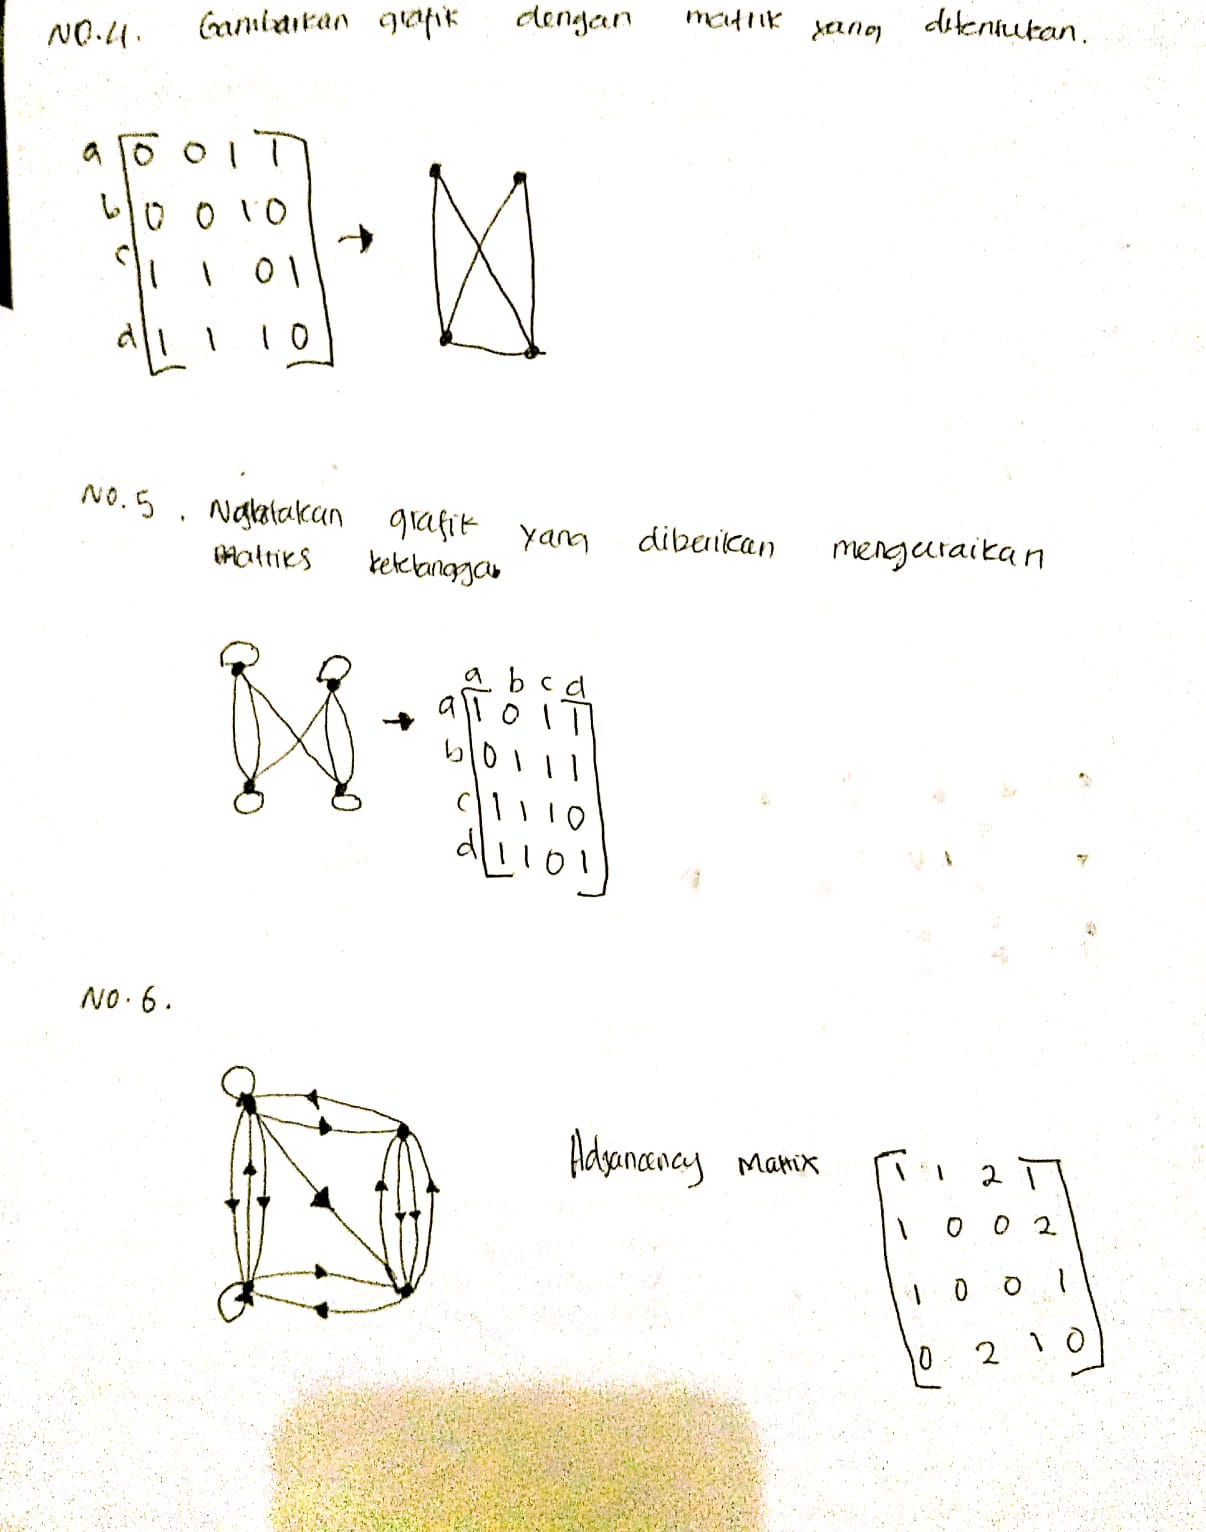 NO.4. Gambarkan grafik dengan matrik yang ditentukan.
a 0 0 1 1
b 0 0 1 0
c 1 1 0 1
d 1 1 1 0
NO.5. yang diberikan menguraikan
grafik
Matriks
a b c d
a 1 0 1 1
b 0 1 1 1
c 1 1 1 0
d 1 1 0 1
NO.6.
Adjancency Matrix
1 1 2 1
1 0 0 2
1 0 0 1
0 2 1 0